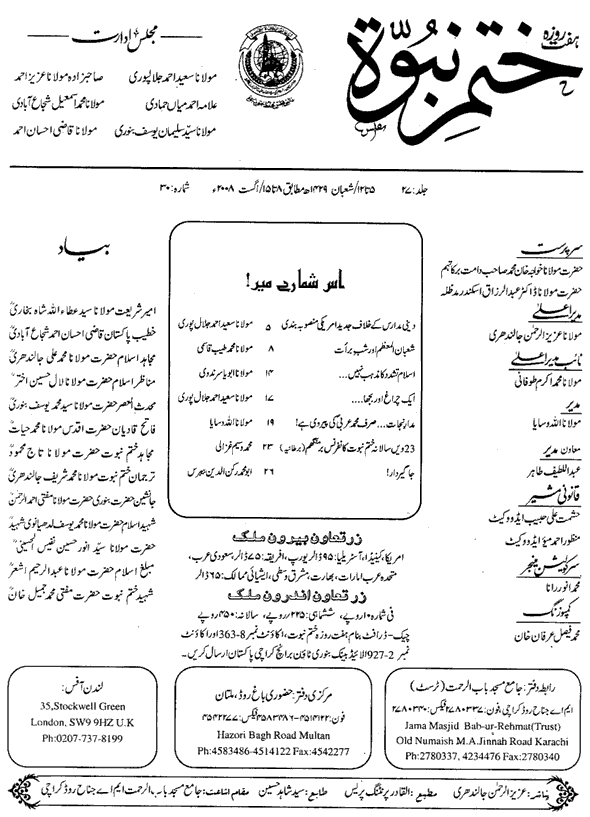 ہفت روزہ
ختم نبوۃ
مجلس ادارت
مولانا سعید احمد جلالپوری صاحبزادہ مولانا عزیز احمد
علامہ احمد میاں حمادی مولانا محمد اسمٰعیل شجاع آبادی
مولانا سید سلیمان یوسف بنوری مولانا قاضی احسان احمد
جلد: ۲۷ ۵ تا ۱۲/شعبان ۱۴۲۹ھ مطابق ۸ تا ۱۵/اگست ۲۰۰۸ء شمارہ: ۳۰
سرپرست
حضرت مولانا خواجہ خان محمد صاحب دامت برکاتہم
حضرت مولانا ڈاکٹر عبدالرزاق اسکندر مدظلہ
مدیر اعلیٰ
مولانا عزیز الرحمٰن جالندھری
نائب مدیر اعلیٰ
مولانا محمد اکرم طوفانی
مدیر
مولانا اللہ وسایا
معاون مدیر
عبداللطیف طاہر
قانونی مشیر
حشمت علی حبیب ایڈووکیٹ
منظور احمد میؤ ایڈووکیٹ
سرکولیشن منیجر
محمد انور رانا
کمپوزنگ
محمد فیصل عرفان خان
اس شمارے میں!
دینی مدارس کے خلاف جدید امریکی منصوبہ بندی ۵ مولانا سعید احمد جلال پوری
شعبان المعظم اور شب برأت ۸ مولانا محمد طیب قاسمی
اسلام تشدد کا مذہب نہیں.... ۱۴ مولانا ابو یاسر ندوی
ایک چراغ اور بجھا.... ۱۷ مولانا سعید احمد جلال پوری
مدار نجات... صرف محمد عربیؐ کی پیروی ہے! ۱۹ مولانا اللہ وسایا
23 ویں سالانہ ختم نبوت کانفرنس برمنگھم (برطانیہ) ۲۳ محمد وسیم غزالی
جاگیردار! ۲۶ ابو محمد رکن الدین
بیاد
امیر شریعت مولانا سید عطاء اللہ شاہ بخاریؒ
خطیب پاکستان قاضی احسان احمد شجاع آبادیؒ
مجاہد اسلام حضرت مولانا محمد علی جالندھریؒ
مناظر اسلام حضرت مولانا لال حسین اخترؒ
محدث العصر حضرت مولانا سید محمد یوسف بنوریؒ
فاتح قادیان حضرت اقدس مولانا محمد حیاتؒ
مجاہد ختم نبوت حضرت مولانا تاج محمودؒ
ترجمان ختم نبوت مولانا محمد شریف جالندھریؒ
جانشین حضرت بنوری حضرت مولانا مفتی احمد الرحمٰنؒ
شہید اسلام حضرت مولانا محمد یوسف لدھیانوی شہیدؒ
حضرت مولانا سید انور حسین نفیس الحسینیؒ
مبلغ اسلام حضرت مولانا عبدالرحیم اشعرؒ
شہید ختم نبوت حضرت مفتی محمد جمیل خانؒ
زر تعاون بیرون ملک
امریکا، کینیڈا، آسٹریلیا: ۹۵ ڈالر یورپ، افریقہ: ۷۵ ڈالر سعودی عرب،
متحدہ عرب امارات، بھارت، مشرق وسطٰی، ایشیائی ممالک: ۶۵ ڈالر
زر تعاون اندرون ملک
فی شمارہ ۱۰ روپے، ششماہی: ۲۲۵ روپے، سالانہ: ۴۵۰ روپے
چیک-ڈرافٹ بنام ہفت روزہ ختم نبوت، اکاؤنٹ نمبر 8-363 اور اکاؤنٹ
نمبر 2-927 الائیڈ بینک بنوری ٹاؤن برانچ کراچی پاکستان ارسال کریں۔
رابطہ دفتر: جامع مسجد باب الرحمت (ٹرسٹ)
ایم اے جناح روڈ کراچی، فون: ۲۷۸۰۳۳۷ فیکس: ۲۷۸۰۳۴۰
Jama Masjid Bab-ur-Rehmat(Trust)
Old Numaish M.A.Jinnah Road Karachi
Ph:2780337, 4234476 Fax:2780340
مرکزی دفتر: حضوری باغ روڈ، ملتان
فون: ۴۵۱۴۱۲۲-۴۵۸۳۴۸۶ فیکس: ۴۵۴۲۲۷۷
Hazori Bagh Road Multan
Ph:4583486-4514122 Fax:4542277
لندن آفس:
35,Stockwell Green
London, SW9 9HZ U.K
Ph:0207-737-8199
عزیز الرحمٰن جالندھری مطبع: القادر پرنٹنگ پریس طابع: سید شاہد حسین مقام اشاعت: جامع مسجد باب الرحمت ایم اے جناح روڈ کراچی